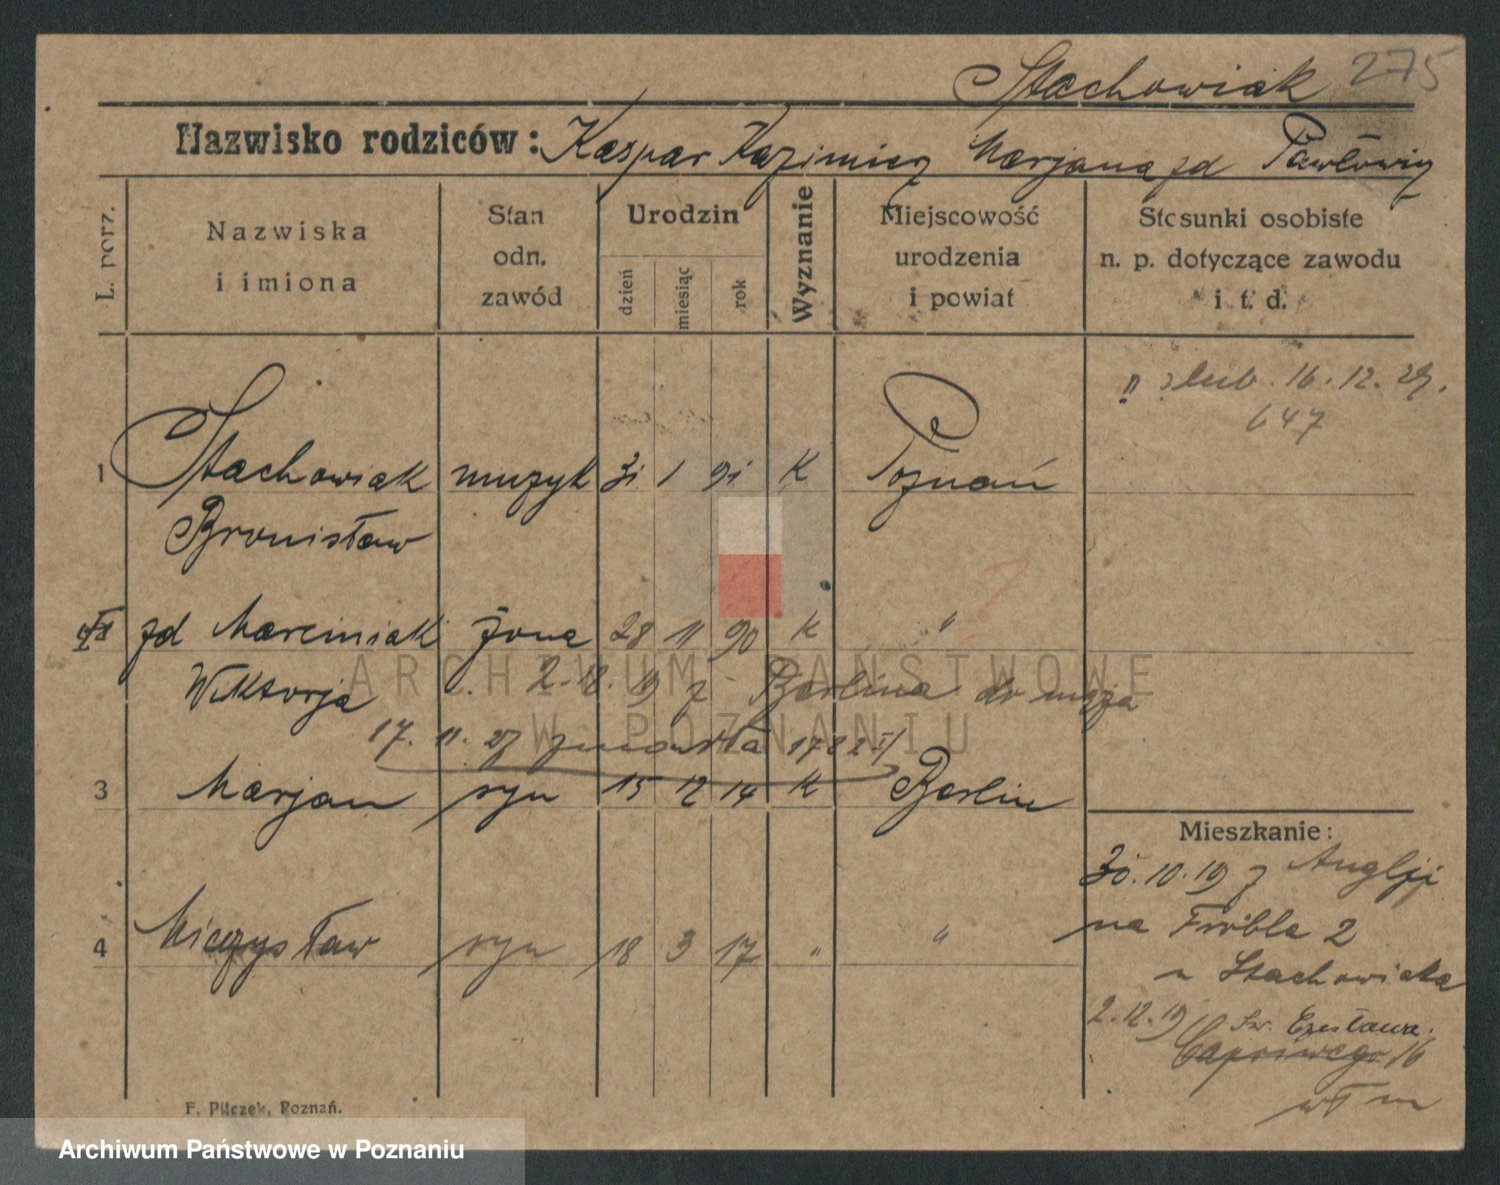 Stachowiak 275
Nazwisko rodziców: Kaspar Kazimierz Marjana zd Pawłowicz
L. porz.
Nazwiska
i imiona
Stan
odn.
zawód
Urodzin
dzień
miesiąc
rok
Wyznanie
Miejscowość
urodzenia
i powiat
Stosunki osobiste
n. p. dotyczące zawodu
i t. d.
II ślub. 16.12.29.
647
1 Stachowiak muzyk 31 1 91 K Poznań
Bronisław
zd Marciniak żona 28 11 90 K "
Wiktorja 2.12.19 z Berlina do męża
17. 11. 27 zmarła
3 Marjan syn 15 12 14 K Berlin
4 Mieczysław syn 18 3 17 " "
Mieszkanie:
30.10.19 z Anglji
na Fröbla 2
u Stachowiaka
2.12.19 Św. Czesława.
Capriviego 16
wł m
F. Pilczek, Poznań.
ARCHIWUM PAŃSTWOWE
W POZNANIU
Archiwum Państwowe w Poznaniu